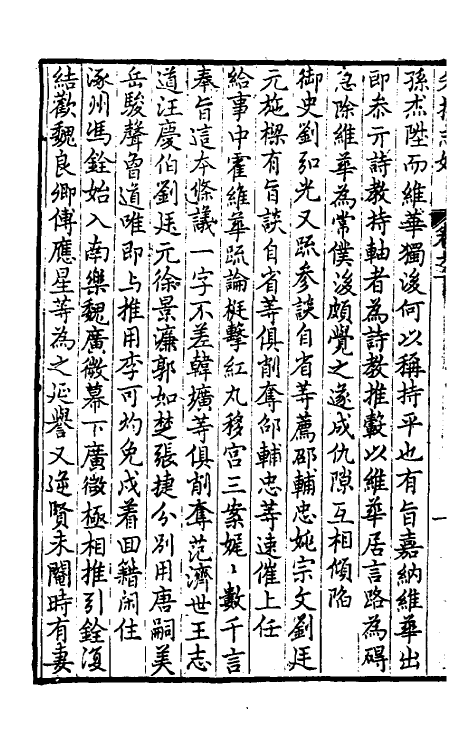 孫杰陞而維華獨後何以稱持平也有旨嘉納維華出
即恭亓詩教持軸者為詩教推轂以維華居言路為碍
急除維華為常僕後頗覺之遂成仇隙互相傾陷
御史劉弘光又疏參談自省等薦邵輔忠姚宗文劉廷
元施樑有旨談自省等俱削奪邵輔忠等速催上任
給事中霍維華疏論梃擊紅丸移宮三案娓〻數千言
奉旨這本條議一字不差韓爌等俱削奪范濟世王志
道汪慶伯劉廷元徐景濂郭如楚張捷分別用唐嗣美
岳駿聲曾道唯即与推用李可灼免戍着回籍閑住
涿州馮銓始入南樂魏廣微幕下廣微極相推引銓復
結歡魏良卿傅應星等為之延譽又逆賢未閹時有妻